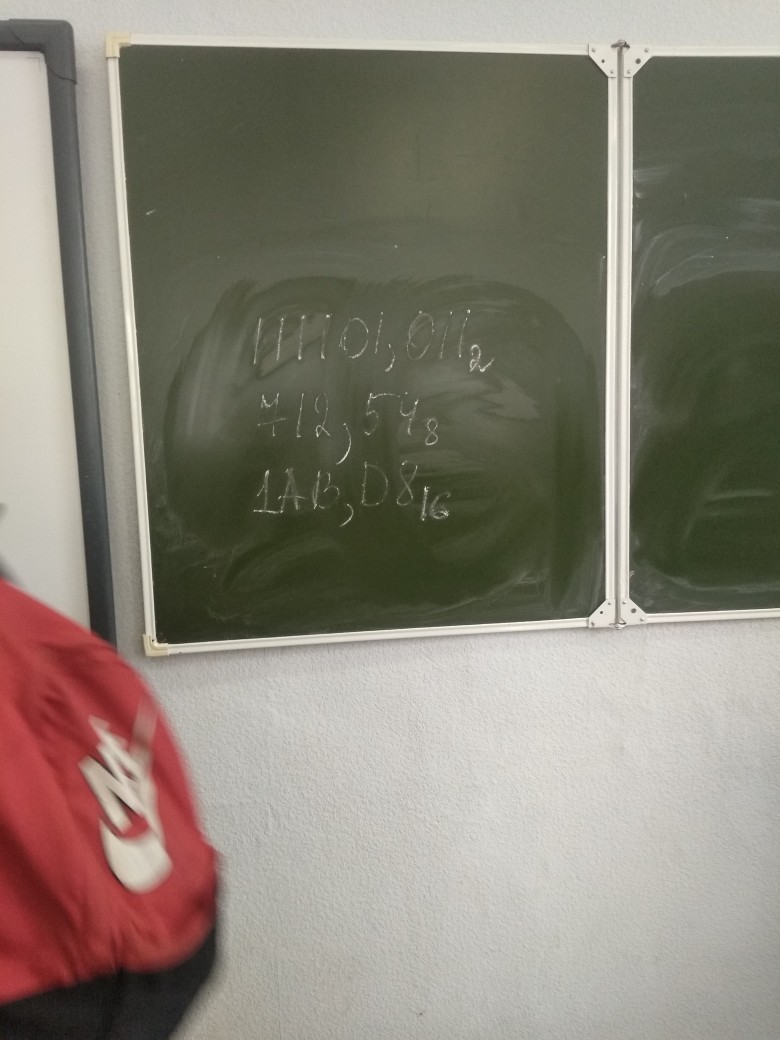 1111101,011₂
712,54₈
1AB,D8₁₆